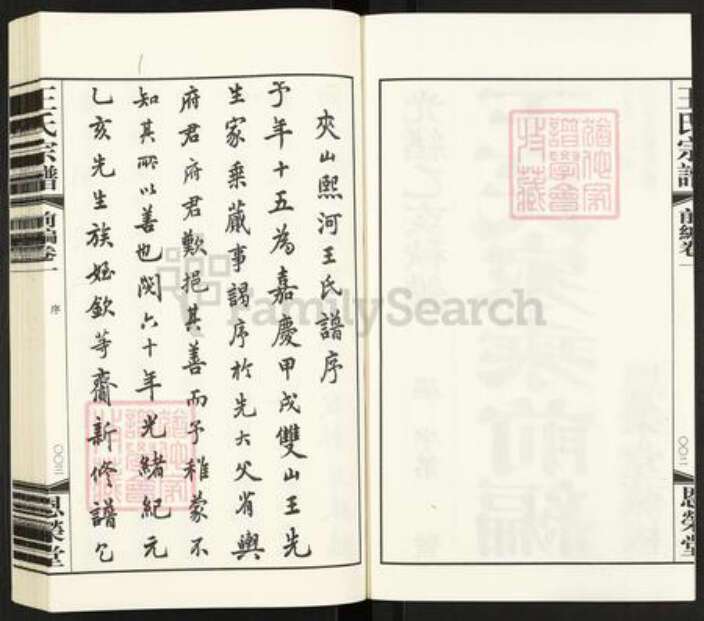 夾山熙河王氏譜序
予年十五為嘉慶甲戌雙山王先
生家乘蕆事謁序於先大父省輿
府君府君歎挹其善而予稚蒙不
知其所以善也閱六十年光緒紀元
乙亥先生族姪欽等齎新修譜乞
王氏宗譜
前編卷一
序
〇〇三
恩榮堂
王氏宗譜
前編卷一
〇〇二
恩榮堂
FamilySearch